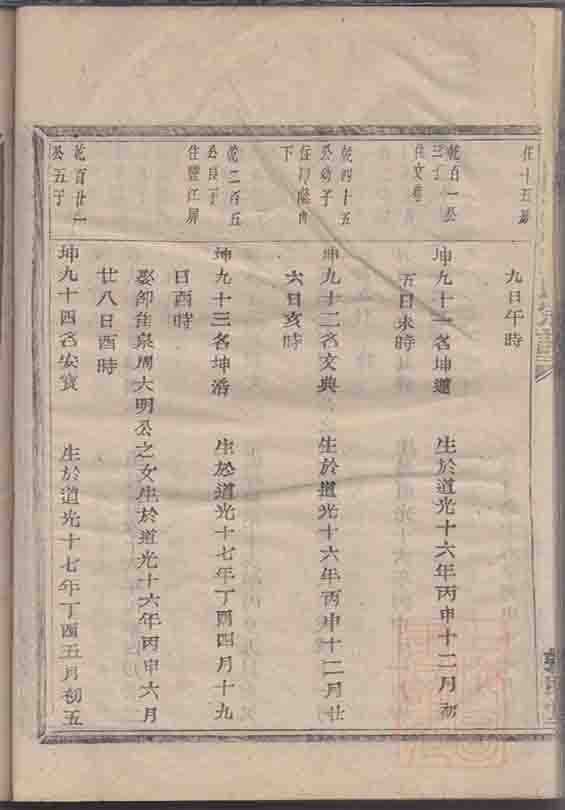 住十五
九日午時
乾百一公
三子
住文
坤九十一名坤道　生於道光十六年丙申十二月初
五日未時
乾四十五
公幼子
下
坤九十二名文典　生於道光十六年丙申十二月廿
六日亥時
乾二百五
公長子
住豐江屏
坤九十三名坤活　生於道光十七年丁酉四月十九
日酉時
娶卸佳泉周大明公之女生於道光十六年丙申六月
廿八日酉時
乾百廿一
公五子
坤九十四名安寶　生於道光十七年丁酉五月初五